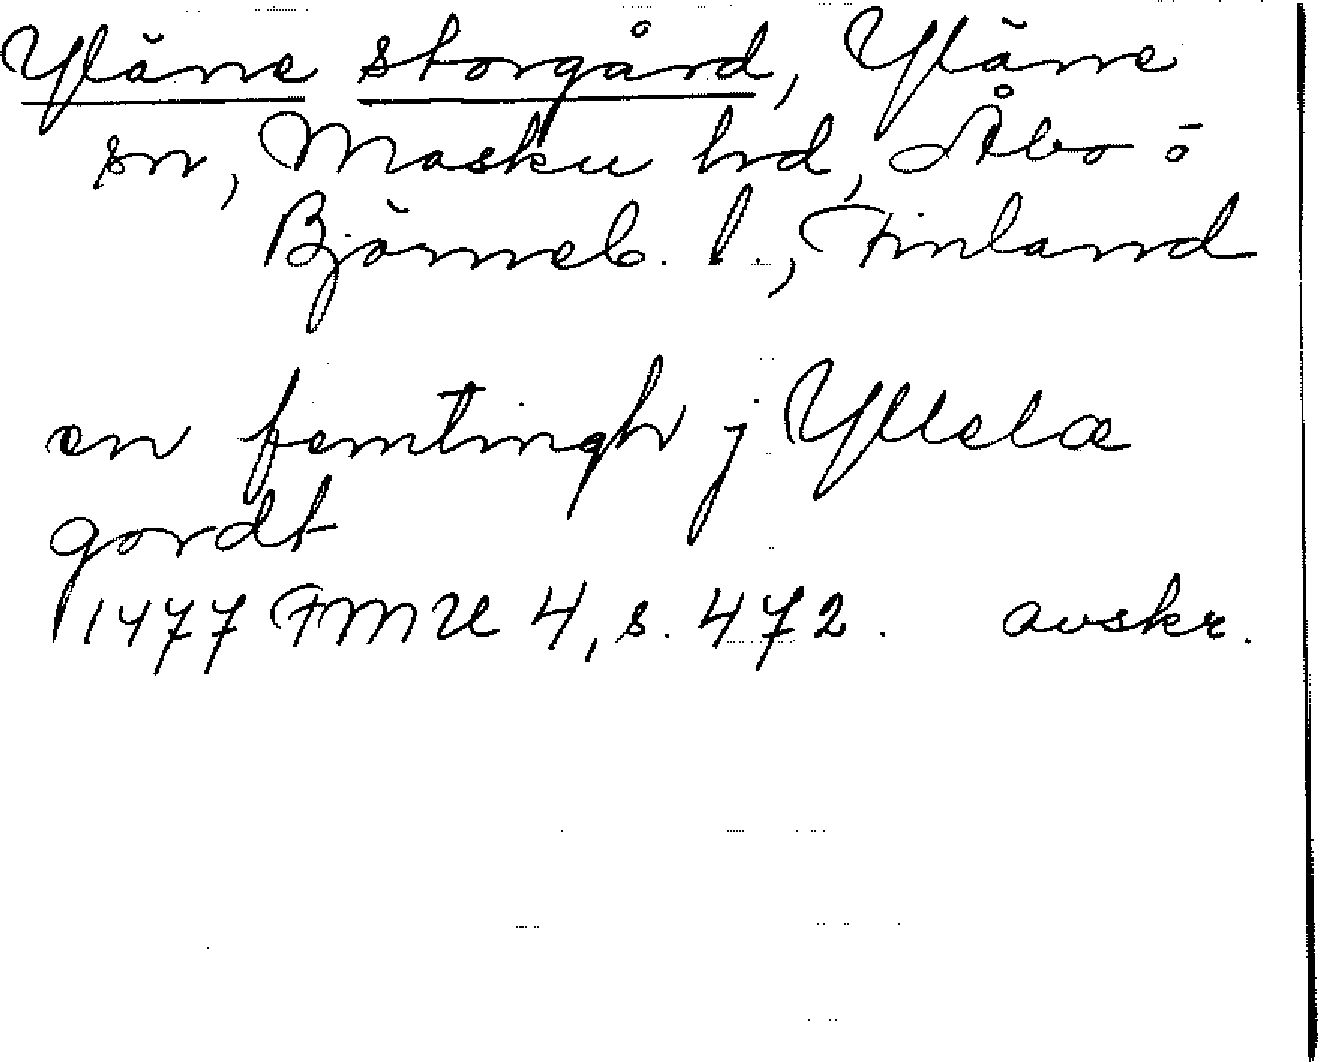 Yläne storgård, Yläne
sn, Masku hd, Åbo ö
Björneb. l., Finland
en femtingh j Yllelæ
gordt
1477 FMU 4, s. 472. avskr.